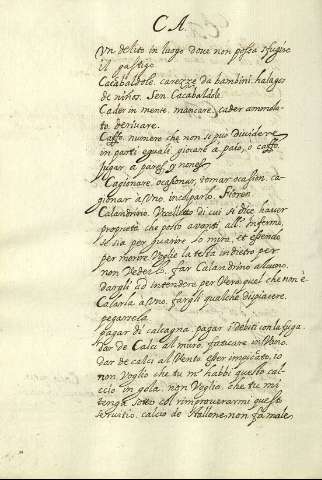 CA
Vn delito in luogo doue non possa sfugire
il gastigo
Cacabaldole. carezze da bambini. halagos
de niños. Sen. Cacabaldole
Cader in mente, mancare, cader ammala-
to. deriuare.
Caffo. numero che non si può diuidere
in parti eguali. giocare à paio, o caffo.
jugar à pares y nones
Cagionare. ocasionar, tomar ocasion. ca-
gionar à Vno. incolparlo.
Calandrino. Vccelletto di cui si dice hauer
proprietà che posto auanti all' Infermo,
se sia per guarire lo mira, et essendo
per morire Voglie la testa indietro per
non Vederlo. far Calandrino alcuno.
dargli ad intendere per Vero quel che non è
Calarla à Vno. fargli qualche dispiacere.
pegarsela.
pagar di calcagna pagar i debiti con la fuga
dar de Calci al muro, faticare in Vano.
dar de calci al Vento esser impicato, io
non Voglio che tu m' habbi questo cal-
ccio in gola. non Voglio che tu mi
tenga sotto col rimprouerarmi questo
seruitio. calcio de stallone non fa male